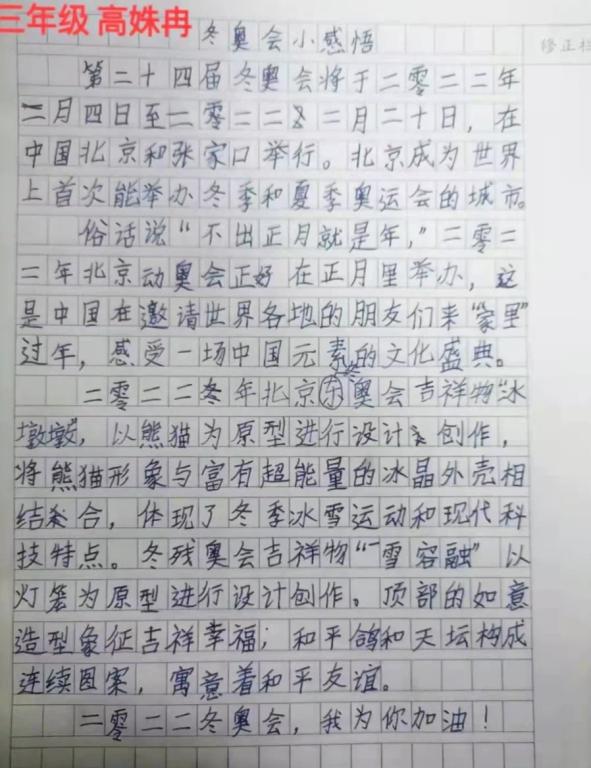 三年级 高姝冉
冬奥会小感悟
修正栏
第二十四届冬奥会将于二零二二年
二月四日至二零二二 二月二十日，在
中国北京和张家口举行。北京成为世界
上首次能举办冬季和夏季奥运会的城市。
俗话说“不出正月就是年，”二零二
二年北京动奥会正好在正月里举办，这
是中国在邀请世界各地的朋友们来“家里”
过年，感受一场中国元素的文化盛典。
二零二二年北京冬奥会吉祥物“冰
墩墩”，以熊猫为原型进行设计创作，
将熊猫形象与富有超能量的冰晶外壳相
结合，体现了冬季冰雪运动和现代科
技特点。冬残奥会吉祥物“雪容融”以
灯笼为原型进行设计创作。顶部的如意
造型象征吉祥幸福；和平鸽和天坛构成
连续图案，寓意着和平友谊。
二零二二冬奥会，我为你加油！